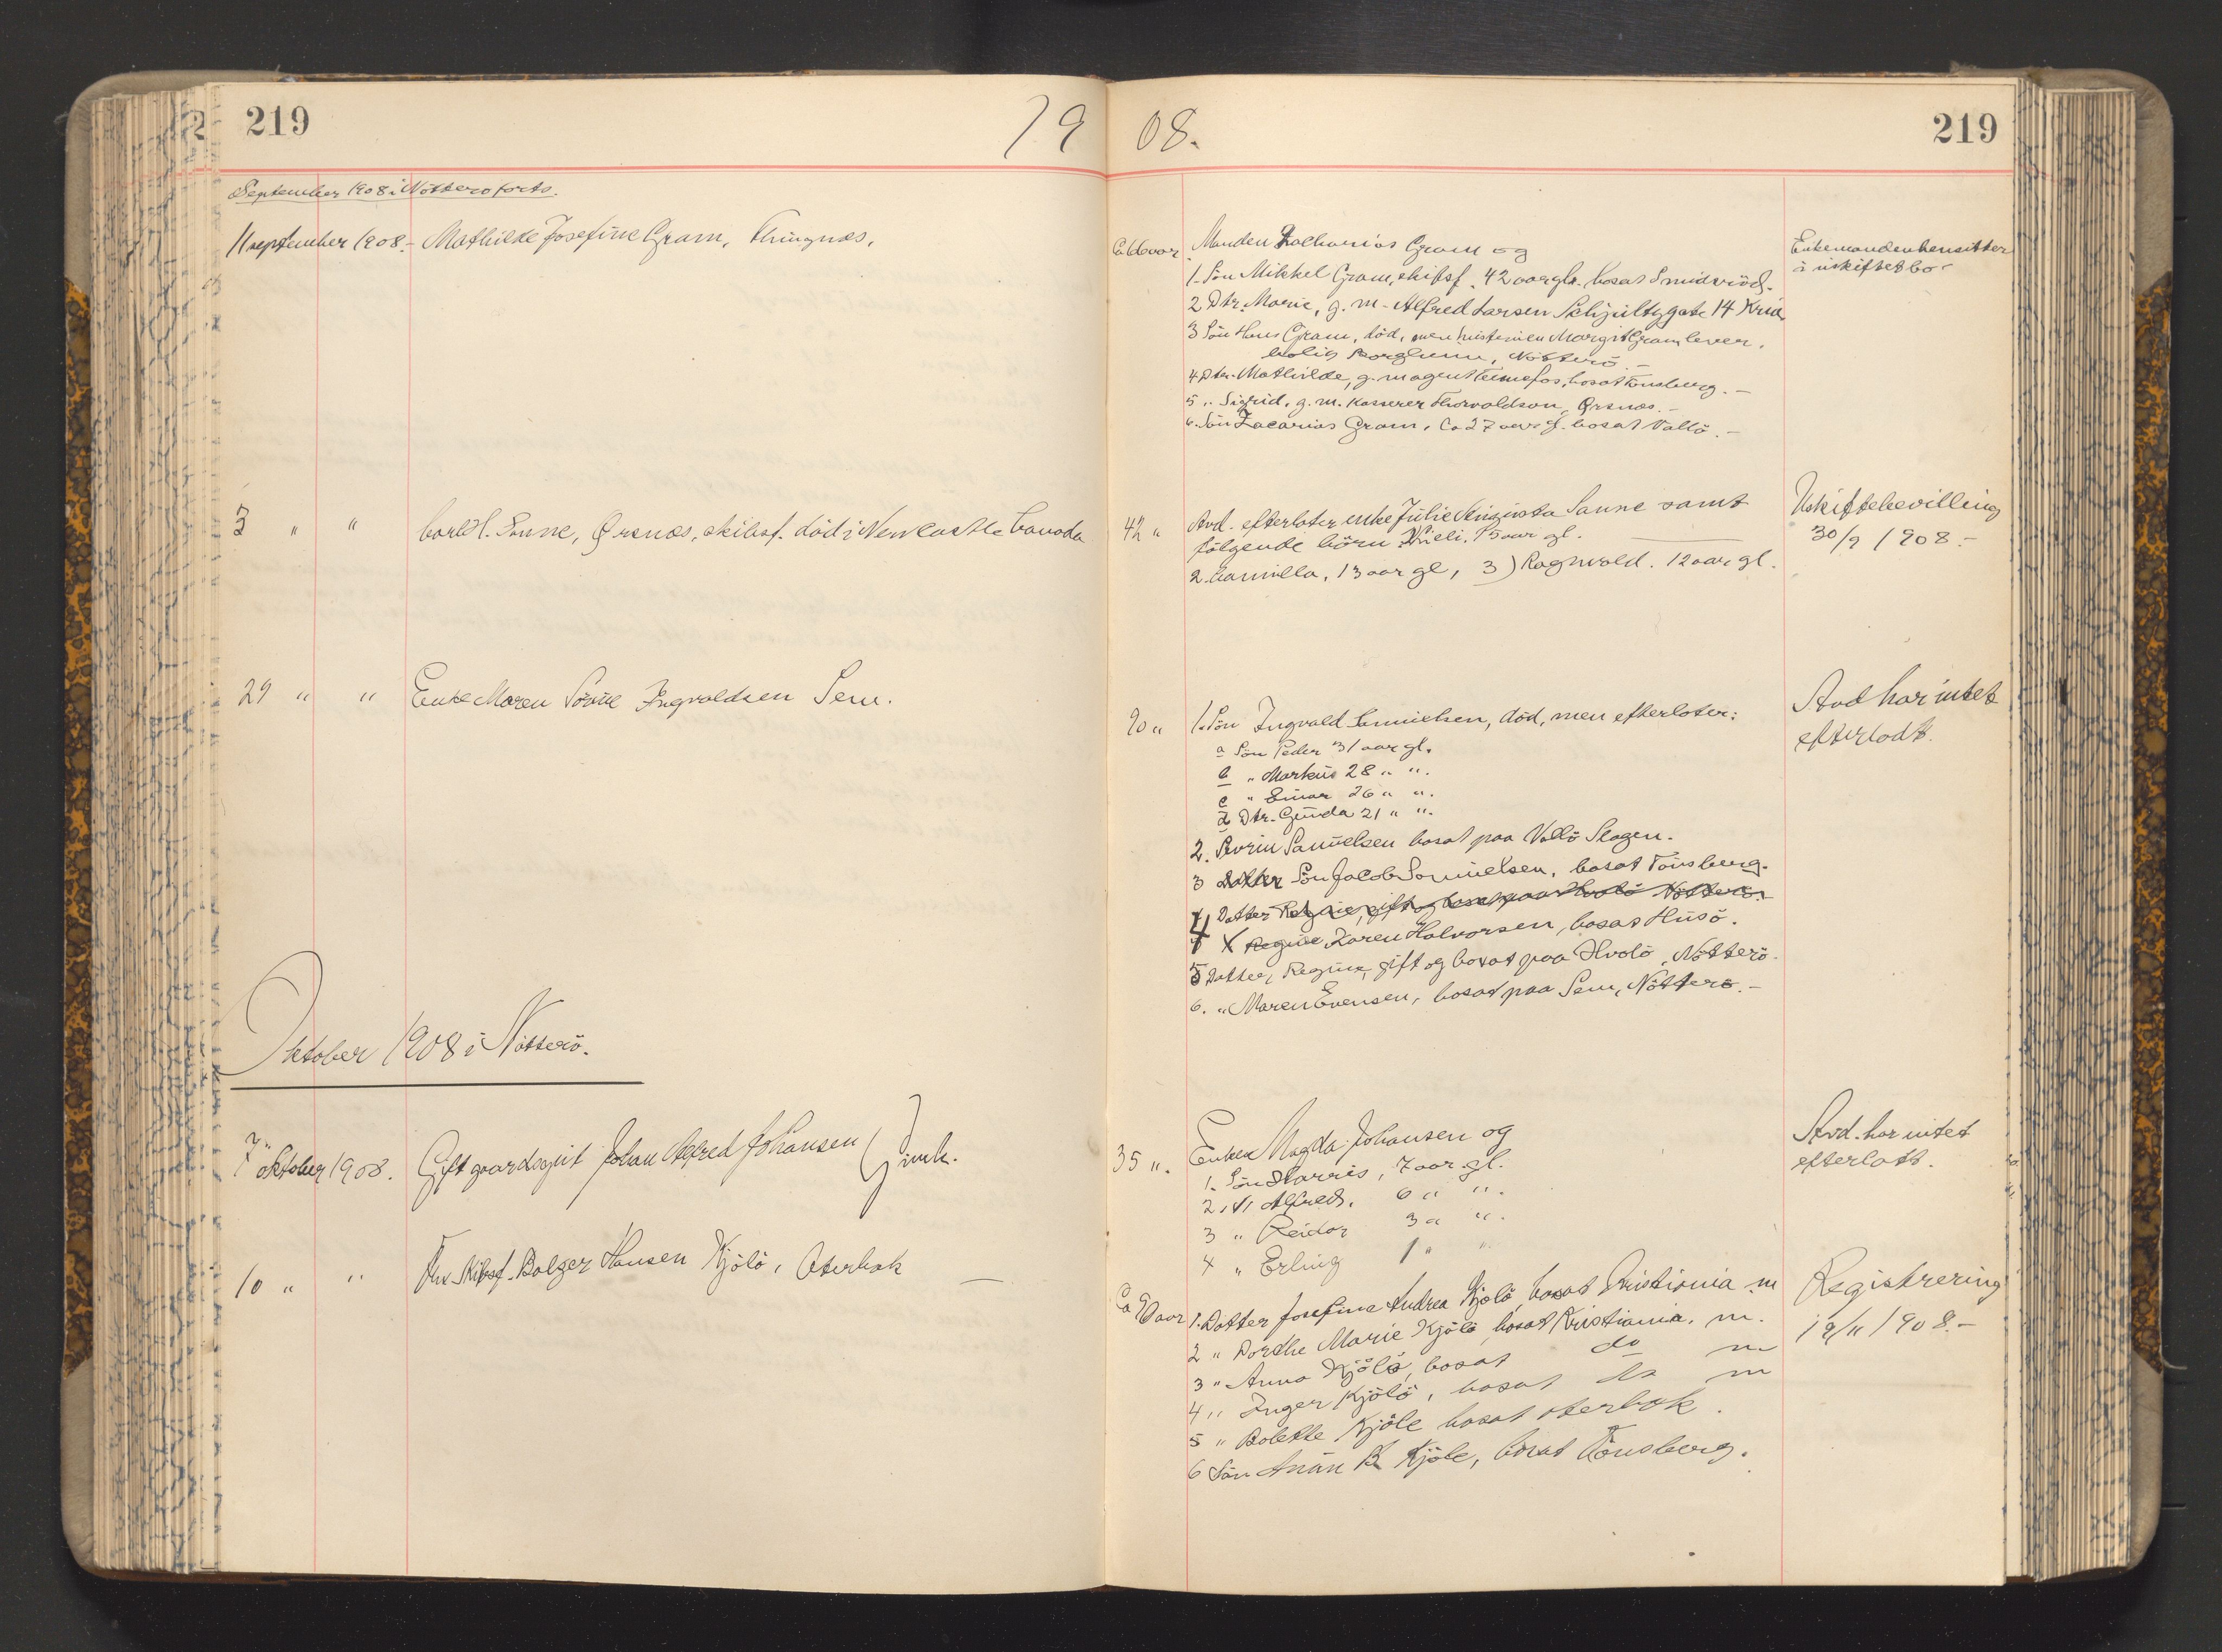 219
19 08.
219
September 1908 i Nötterö forts.
11 september 1908.- Mathilde Josefine Gram,
Manden Zacharias Gram og
1. Sön Mikkel Gram, skibsf. 42 aar gl. bosat Smidsröd.-
2 Dtr. Marie, g. m. Alfred Larsen Schjultzgate 14 Kria
3 Sön Hans Gram, död, men hustruen Margit Gram lever.
bolig Borgheim, Nötterö.-
4 Dtr. Mathilde, g. m agent bosat Tönsberg.-
5 " Sigrid, g. m. Kasserer Thorvaldson, Örsnæs.-
6. Sön Zacarias Gram, Ca 27 aar g. bosat Vallö.-
Enkemanden hensitter
i uskiftet bo.-
3 " "
Carl H. Sanne, Ørsnæs, skibsf. död i Newcastle Canada
42 "
Avd. efterlater enke Julie Augusta Sanne samt
følgende börn: 15 aar gl.
2. Camilla, 13 aar gl, 3) Ragnvald. 12 aar gl.
Uskiftebevilling
30/9 1908.-
29 " "
Enke Maren Ingvoldsen Sem.
90 "
1. Sön Ingvald Samuelsen, död, men efterlater:
a Sön Peder 31 aar gl.
b " Markus 28 " ".
c " Einar 26 " ".
d Dtr. Gunda 21 " ".
2. Severin Samuelsen bosat paa Vallö Slagen.
3 Datter Sön Jacob Samuelsen, bosat Tönsberg.
4 Datter Regine, gift og bosat paa Hvalö Nötterö.
4 Regine Karen Halvorsen, bosat Husö.
5 Datter, Regine, gift og bosat paa Hvalö, Nötterö.
6. " Maren Evensen, bosat paa Sem, Nötterö.-
Avd har intet
efterladt.
Oktober 1908 i Nötterö.
7 oktober 1908.
Gift gaardsgut Johan Alfred Johansen
35 ".
Enken Magda Johansen og
1. Sön Harris, 7 aar gl.
2. " Alfred. 6 " ".
3 " Reidar 3 " ".
4 " Erling 1 " "
Avd. har intet
efterladt.
10 " "
Fhv. Skibsf. Bolger Hansen Kjölö, Oterbæk —
1. Datter Josefine Andrea Kjölö, bosat Kristiania m
2 " Dorthe Marie Kjölö bosat Kristiania. m.
3 " Anna Kjölö, bosat do m
4 " Inger Kjölö, bosat do m
5 " Bolette Kjöle bosat oterbæk.
6 Sön B Kjöle, bosat Tönsberg.
Registrering
19/11 1908.-